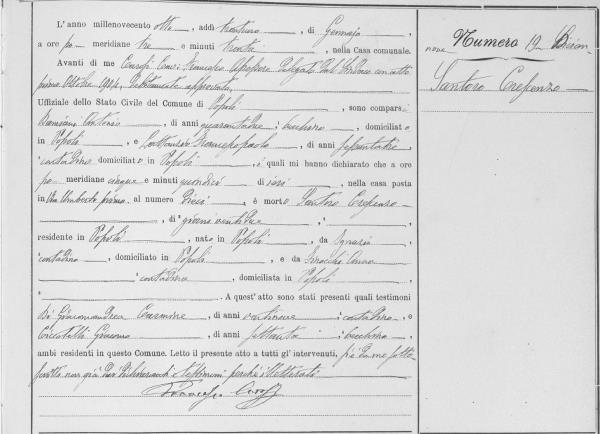 L'anno millenovecento otto, addì trentuno, di Gennajo,
a ore po meridiane tre e minuti trenta, nella Casa comunale.
Avanti di me Francesco Assessore Delegato dal Sindaco con atto
primo Ottobre debitamente approvato,
Uffiziale dello Stato Civile del Comune di Popoli, sono comparsi
Damiani Antonio, di anni quarantadue, becchino, domiciliato
in Popoli, e Francescopaolo, di anni sessantatre
contadino domiciliato in Popoli, i quali mi hanno dichiarato che a ore
po meridiane cinque e minuti quindici di ieri, nella casa posta
in Via Umberto primo al numero Dieci, è morto Santoro Crescenzo
, di giorni ventidue,
residente in Popoli, nato in Popoli, da Ignazio
contadino, domiciliato in Popoli, e da Anna
contadina, domicilista in Popoli
. A quest'atto sono stati presenti quali testimoni
Di Giacomandrea Carmine, di anni ventinove, contadino, e
Ciccotelli Giacomo, di anni settanta, becchino,
ambi residenti in questo Comune. Letto il presente atto a tutti gl'intervenuti, si è da me sotto
scritto non già dai dichiaranti e testimoni perchè illetterati
Francesco
Numero 19
Santoro Crescenzo